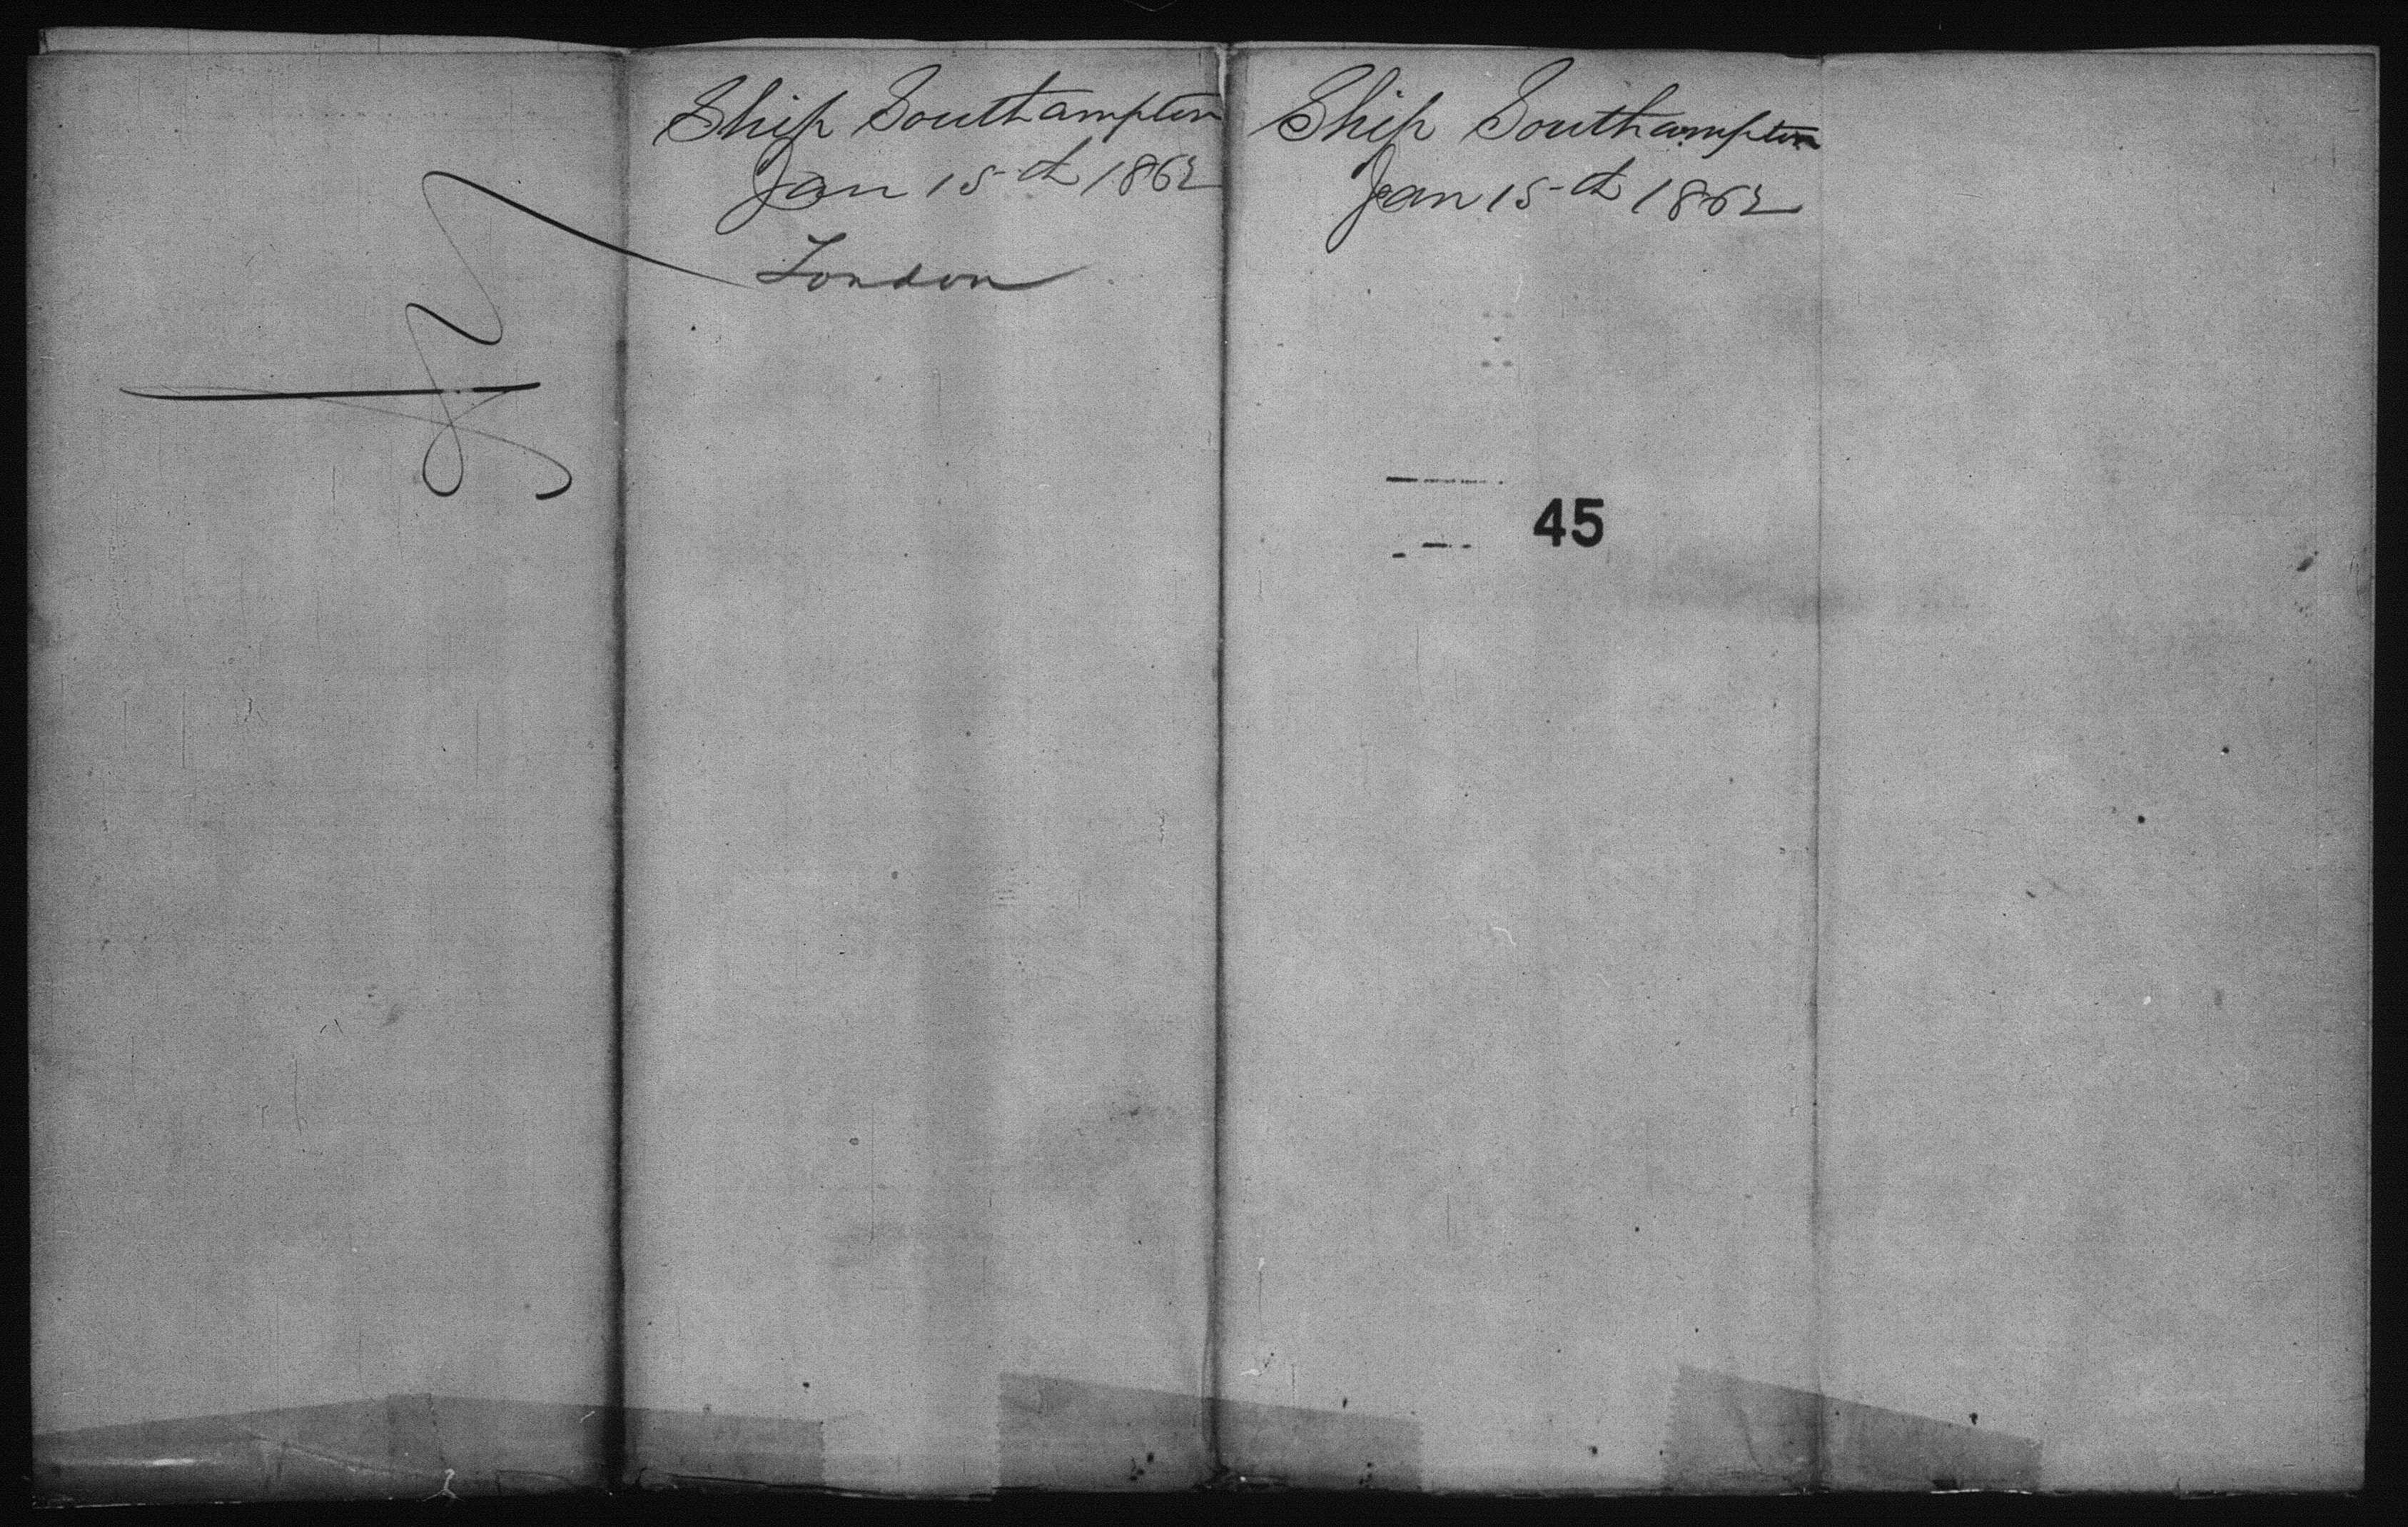 Ship Southampton
Jan 15th 1862
London
Ship Southampton
Jan 15th 1862
45